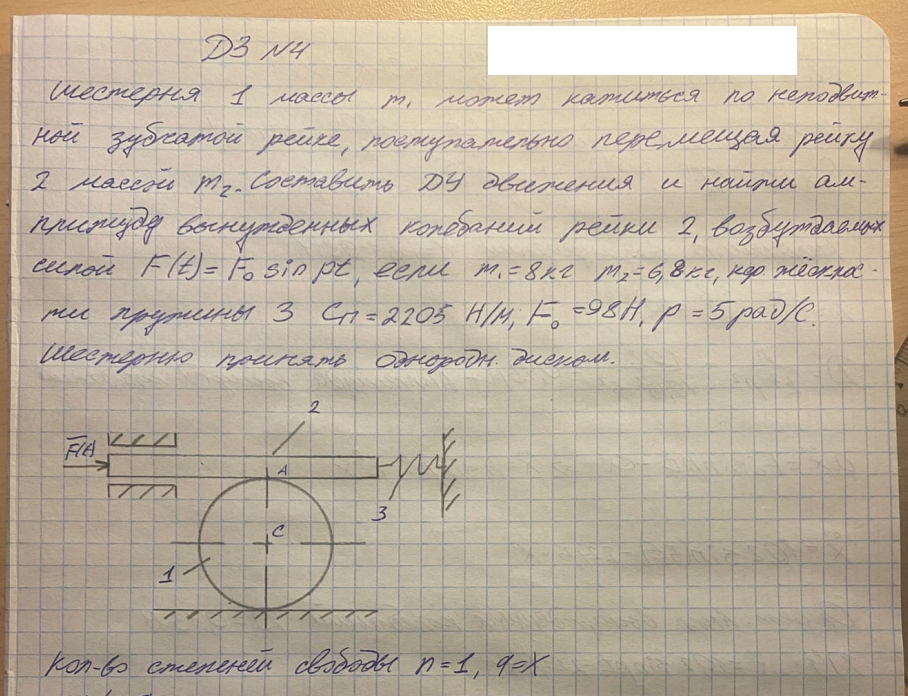 ДЗ №4
Шестерня 1 массы m₁ может катиться по неподвиж-
ной зубчатой рейке, поступательно перемещая рейку
2 массой m₂. Составить ДУ движения и найти ам-
плитуду вынужденных колебаний рейки 2, возбуждаемых
силой F(t)=F₀ sin pt, если m₁=8кг m₂=6,8кг, коэф жёсткос-
ти пружины 3 Cп=2205 Н/м, F₀=98Н, p=5рад/с.
Шестерню принять однородн. диском.
2
F(t)
A
3
C
1
Кол-во степеней свободы n=1, q=x